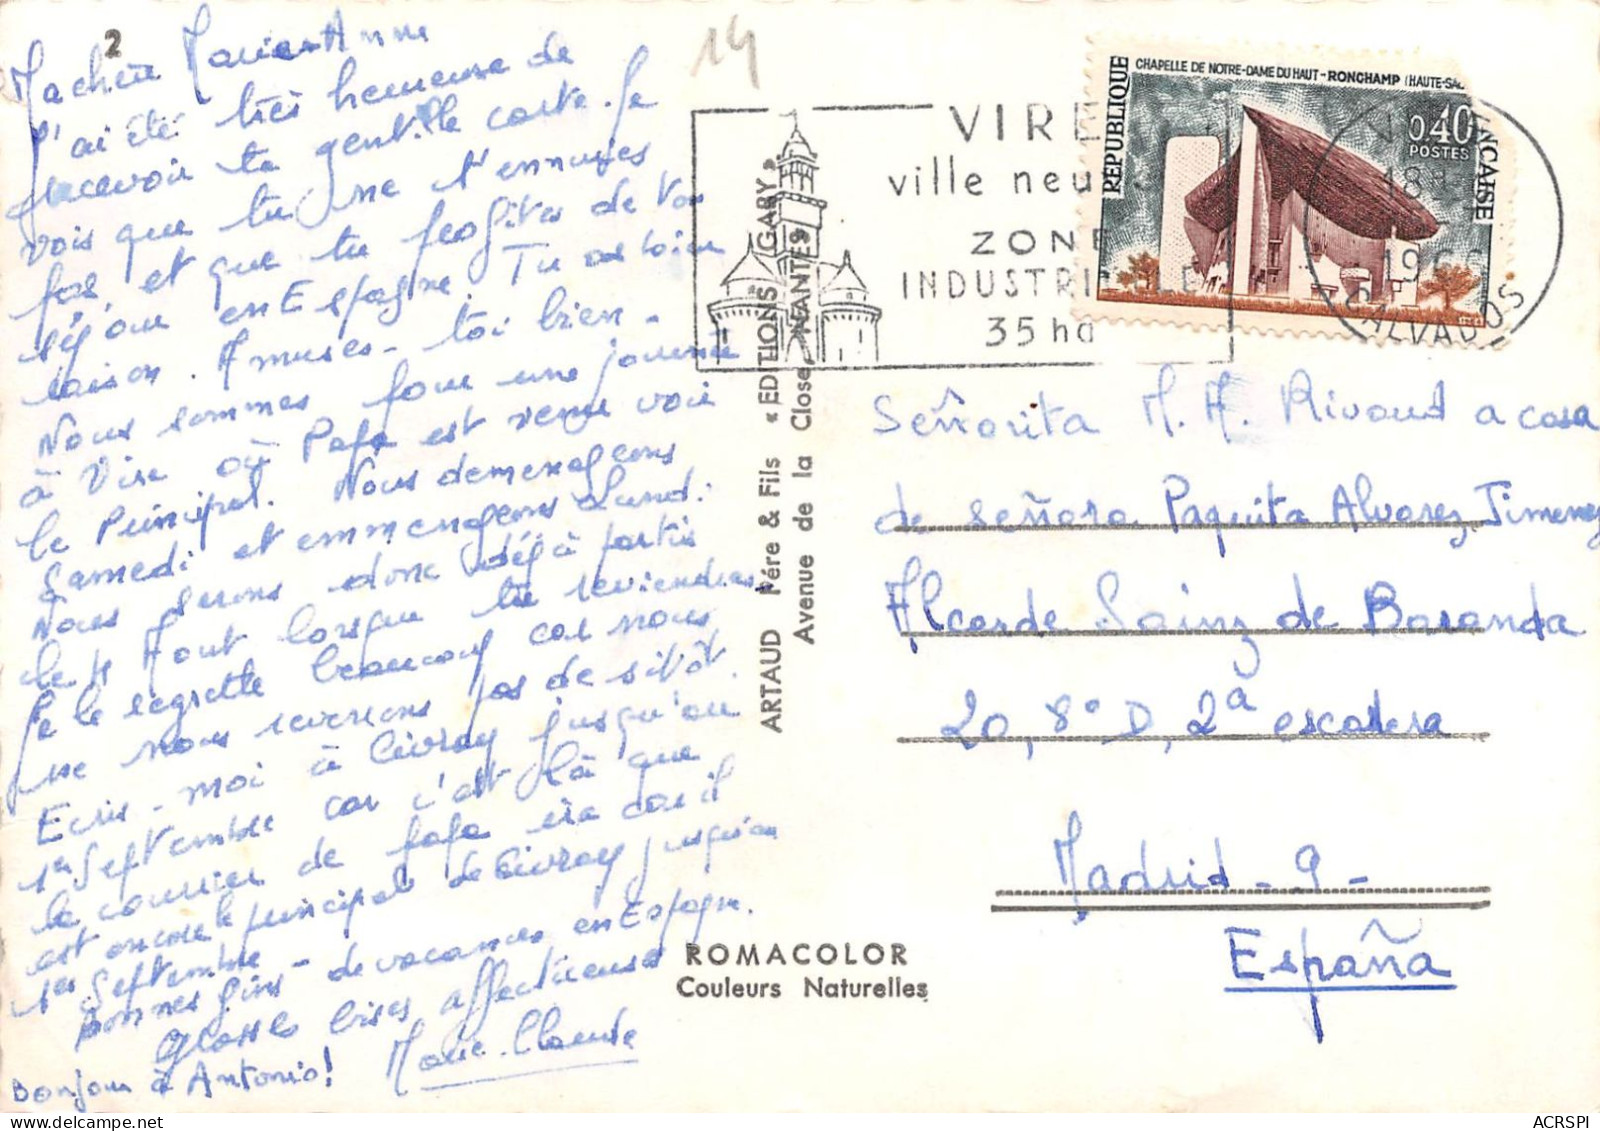 2
14
Ma chère Marie-Anne
J'ai été très heureuse de
recevoir ta gentille carte. Je
vois que tu ne t'ennuyes
pas et que tu profites de ton
séjour en Espagne Tu as bien
raison. Amuses-toi bien-
Nous sommes pour une journée
à Vire où Papa est venu voir
le Principal. Nous demenageons
Samedi et emmenageons Lundi.
Nous serons donc déjà partis
le Août lorsque tu reviendras
Je le regrette beaucoup car nous
ne nous reverrons pas de sitôt.
Ecris-moi à Civray jusqu'au
1er Septembre car c'est là que
le courrier de papa ira car il
est encore le principal de Civray jusqu'au
1er Septembre
Bonnes fins - de vacances en Espagne.
Grosses bises affectueuses
Marie-Claude
Bonjour à Antonio!
ARTAUD Père & Fils « EDITIONS GABY »
Avenue de la Close, NANTES
ROMACOLOR
Couleurs Naturelles
VIRE
ville neu
ZONE
INDUSTRI LE
35 ha
REPUBLIQUE
CHAPELLE DE NOTRE-DAME DU HAUT - RONCHAMP (HAUTE-SA
0,40
POSTES
NÇAISE
18
196
CALVADOS
Señorita M. A. Rivaud a casa
de señora Paquita Alvarez Jimenez
Alcarde Sainz de Baranda
20, 8° D, 2ª escalera
Madrid - 9 -
España
ACRSPI